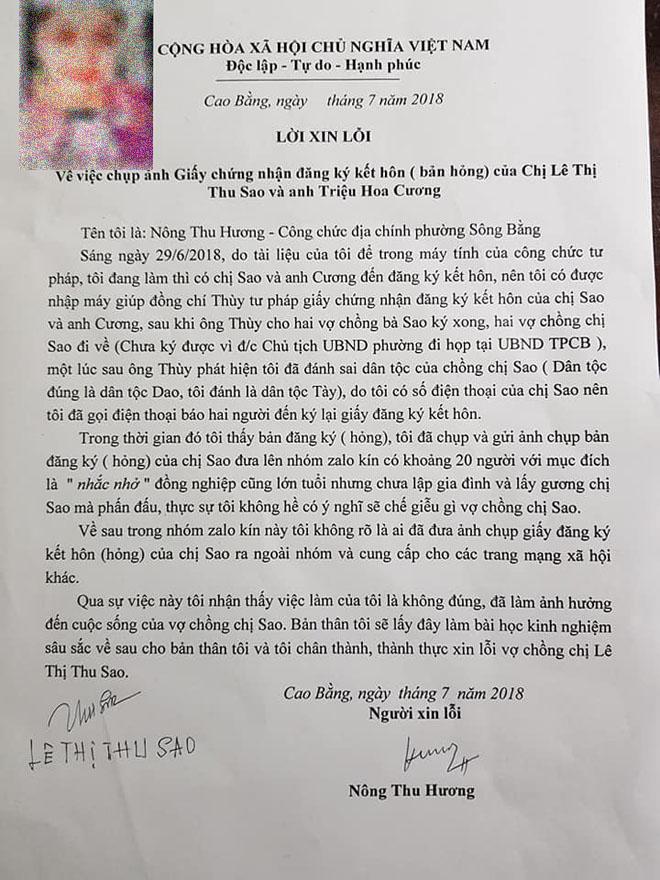 CỘNG HÒA XÃ HỘI CHỦ NGHĨA VIỆT NAM
Độc lập - Tự do - Hạnh phúc
Cao Bằng, ngày tháng 7 năm 2018
LỜI XIN LỖI
Về việc chụp ảnh Giấy chứng nhận đăng ký kết hôn ( bản hỏng) của Chị Lê Thị
Thu Sao và anh Triệu Hoa Cương
Tên tôi là: Nông Thu Hương - Công chức địa chính phường Sông Bằng
Sáng ngày 29/6/2018, do tài liệu của tôi để trong máy tính của công chức tư
pháp, tôi đang làm thì có chị Sao và anh Cương đến đăng ký kết hôn, nên tôi có được
nhập máy giúp đồng chí Thùy tư pháp giấy chứng nhận đăng ký kết hôn của chị Sao
và anh Cương, sau khi ông Thùy cho hai vợ chồng bà Sao ký xong, hai vợ chồng chị
Sao đi về (Chưa ký được vì đ/c Chủ tịch UBND phường đi họp tại UBND TPCB ),
một lúc sau ông Thùy phát hiện tôi đã đánh sai dân tộc của chồng chị Sao ( Dân tộc
đúng là dân tộc Dao, tôi đánh là dân tộc Tày), do tôi có số điện thoại của chị Sao nên
tôi đã gọi điện thoại báo hai người đến ký lại giấy đăng ký kết hôn.
Trong thời gian đó tôi thấy bản đăng ký ( hỏng), tôi đã chụp và gửi ảnh chụp bản
đăng ký ( hỏng) của chị Sao đưa lên nhóm zalo kín có khoảng 20 người với mục đích
là " nhắc nhở " đồng nghiệp cũng lớn tuổi nhưng chưa lập gia đình và lấy gương chị
Sao mà phấn đấu, thực sự tôi không hề có ý nghĩ sẽ chế giễu gì vợ chồng chị Sao.
Về sau trong nhóm zalo kín này tôi không rõ là ai đã đưa ảnh chụp giấy đăng ký
kết hôn (hỏng) của chị Sao ra ngoài nhóm và cung cấp cho các trang mạng xã hội
khác.
Qua sự việc này tôi nhận thấy việc làm của tôi là không đúng, đã làm ảnh hưởng
đến cuộc sống của vợ chồng chị Sao. Bản thân tôi sẽ lấy đây làm bài học kinh nghiệm
sâu sắc về sau cho bản thân tôi và tôi chân thành, thành thực xin lỗi vợ chồng chị Lê
Thị Thu Sao.
Cao Bằng, ngày tháng 7 năm 2018
Người xin lỗi
LÊ THỊ THU SAO
Nông Thu Hương